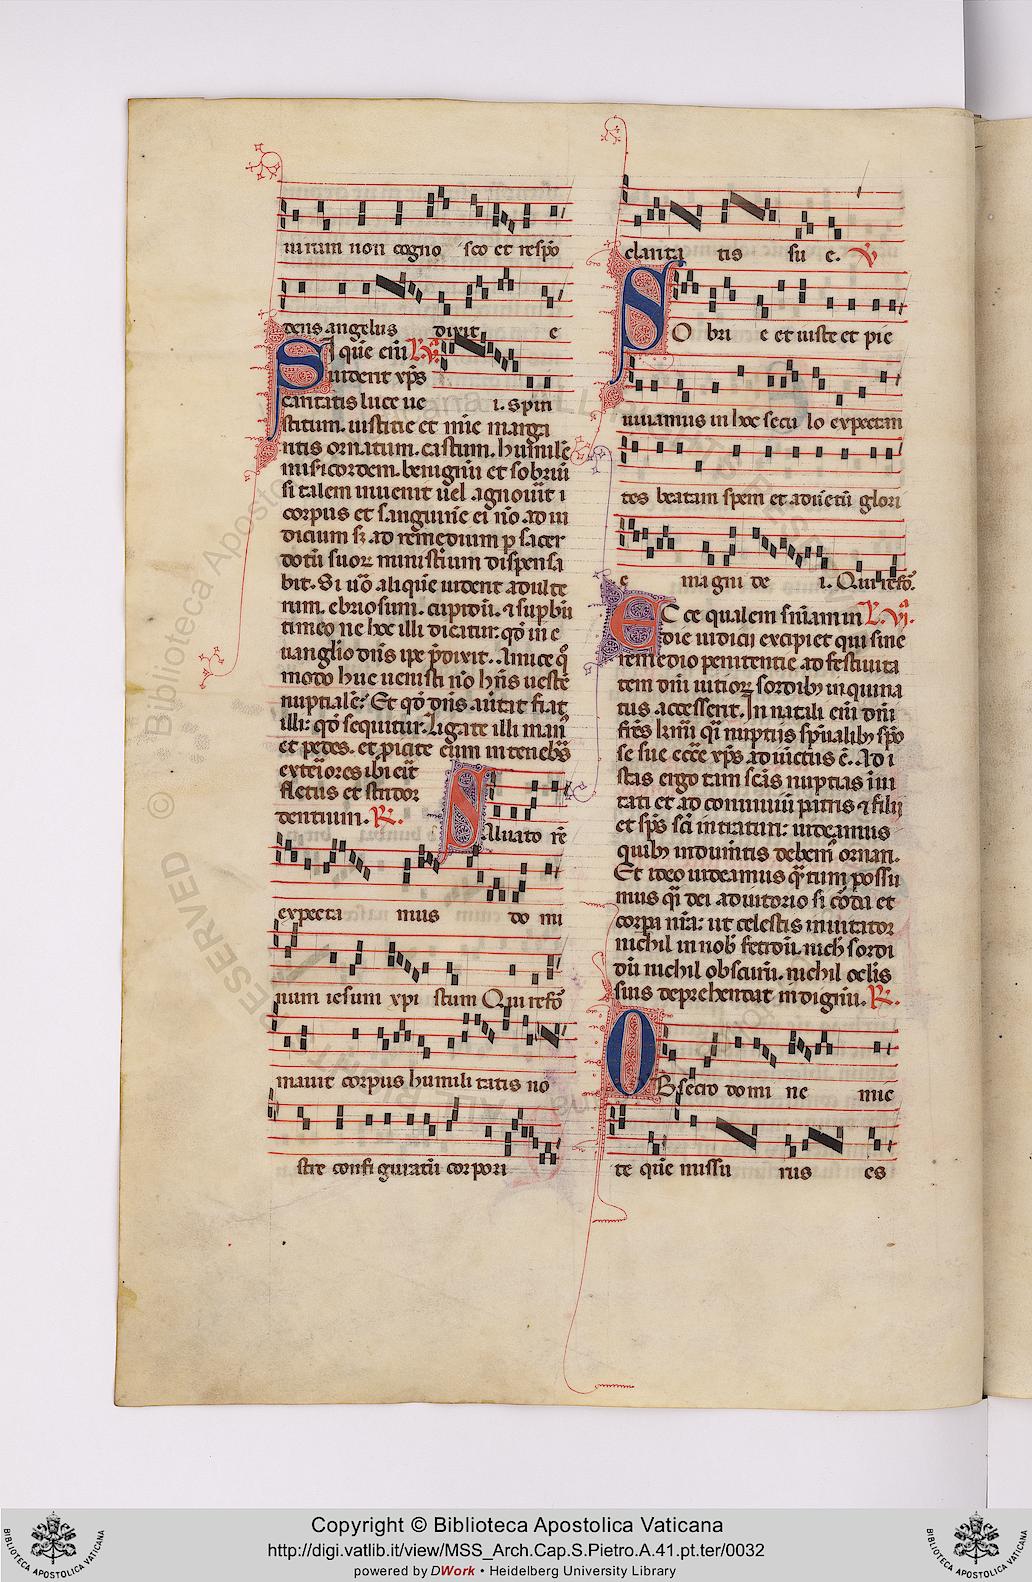 uirum non cogno sco et respō
dens angelus dixit e
Si quē eiū L. v.
uident xp̄s
caritatis luce ue i. spiri
stitum. iustitie et mīe marga
ritis ornatum. castum. humilē
misericordem. benignū et sobriū
si talem inuenit uel agnouit i
corpus et sanguinē ei nō ad iu
dicium sꝫ ad remedium p sacer
dotū suoꝝ ministium dispensa
bit. Si uō aliquē uident adulte
rum. ebriosum. cupidū. ⁊ supbū
timeo ne hoc illi dicatur: qd in e
uanglio dn̄s ipe p̄dixit. Amice qͦ
modo huc uenisti nō hn̄s uestē
nuptialē? Et qd dn̄s auertat fiat
illi: qd sequitur. Ligate illi man
et pedes. et picite eum in tenebs
exteriores ibi erit
fletus et stridor
dentium. R.
Saluato rē
expecta mus do mi
num iesum xpi stum Qui refō
mauit corpus humili tatis no
stre confi guratū cor pori
claritа tis su e. V
SO bri e et iuste et pie
uiuamus in hoc secu lo expectan
tes beatam spem et aduētū glori
e magni de i. Qui refō.
ECce qualem sniam in L. vi.
die iudicii excipiet qui sine
remedio penitentie ad festiuita
tem dn̄i uitioꝝ sordibꝫ inquina
tus accesserit. In natali eiū dn̄i
frēs kmi qi nuptiis spualibꝫ spō
se sue eccē xp̄s adiūctus ē. Ad i
stas ergo tam sc̄as nuptias inui
tati et ad conuiuiū patris ⁊ filii
et sp̄s sc̄i intraturi: uideamus
quibꝫ indumtis debem ornari.
Et ideo uideamus q̄ntum possu
mus qi dei adiutorio si corda et
corpa nr̄a: ut celestis inuitator
nichil in nob fetidū. nich sordi
dū nichil obscurū. nichil oclis
suis deprehendat indignū. R.
OBsecro do mi ne mic
te quē missu rus es
Copyright © Biblioteca Apostolica Vaticana
http://digi.vatlib.it/view/MSS_Arch.Cap.S.Pietro.A.41.pt.ter/0032
powered by DWork • Heidelberg University Library
BIBLIOTECA APOSTOLICA VATICANA
BIBLIOTECA APOSTOLICA VATICANA